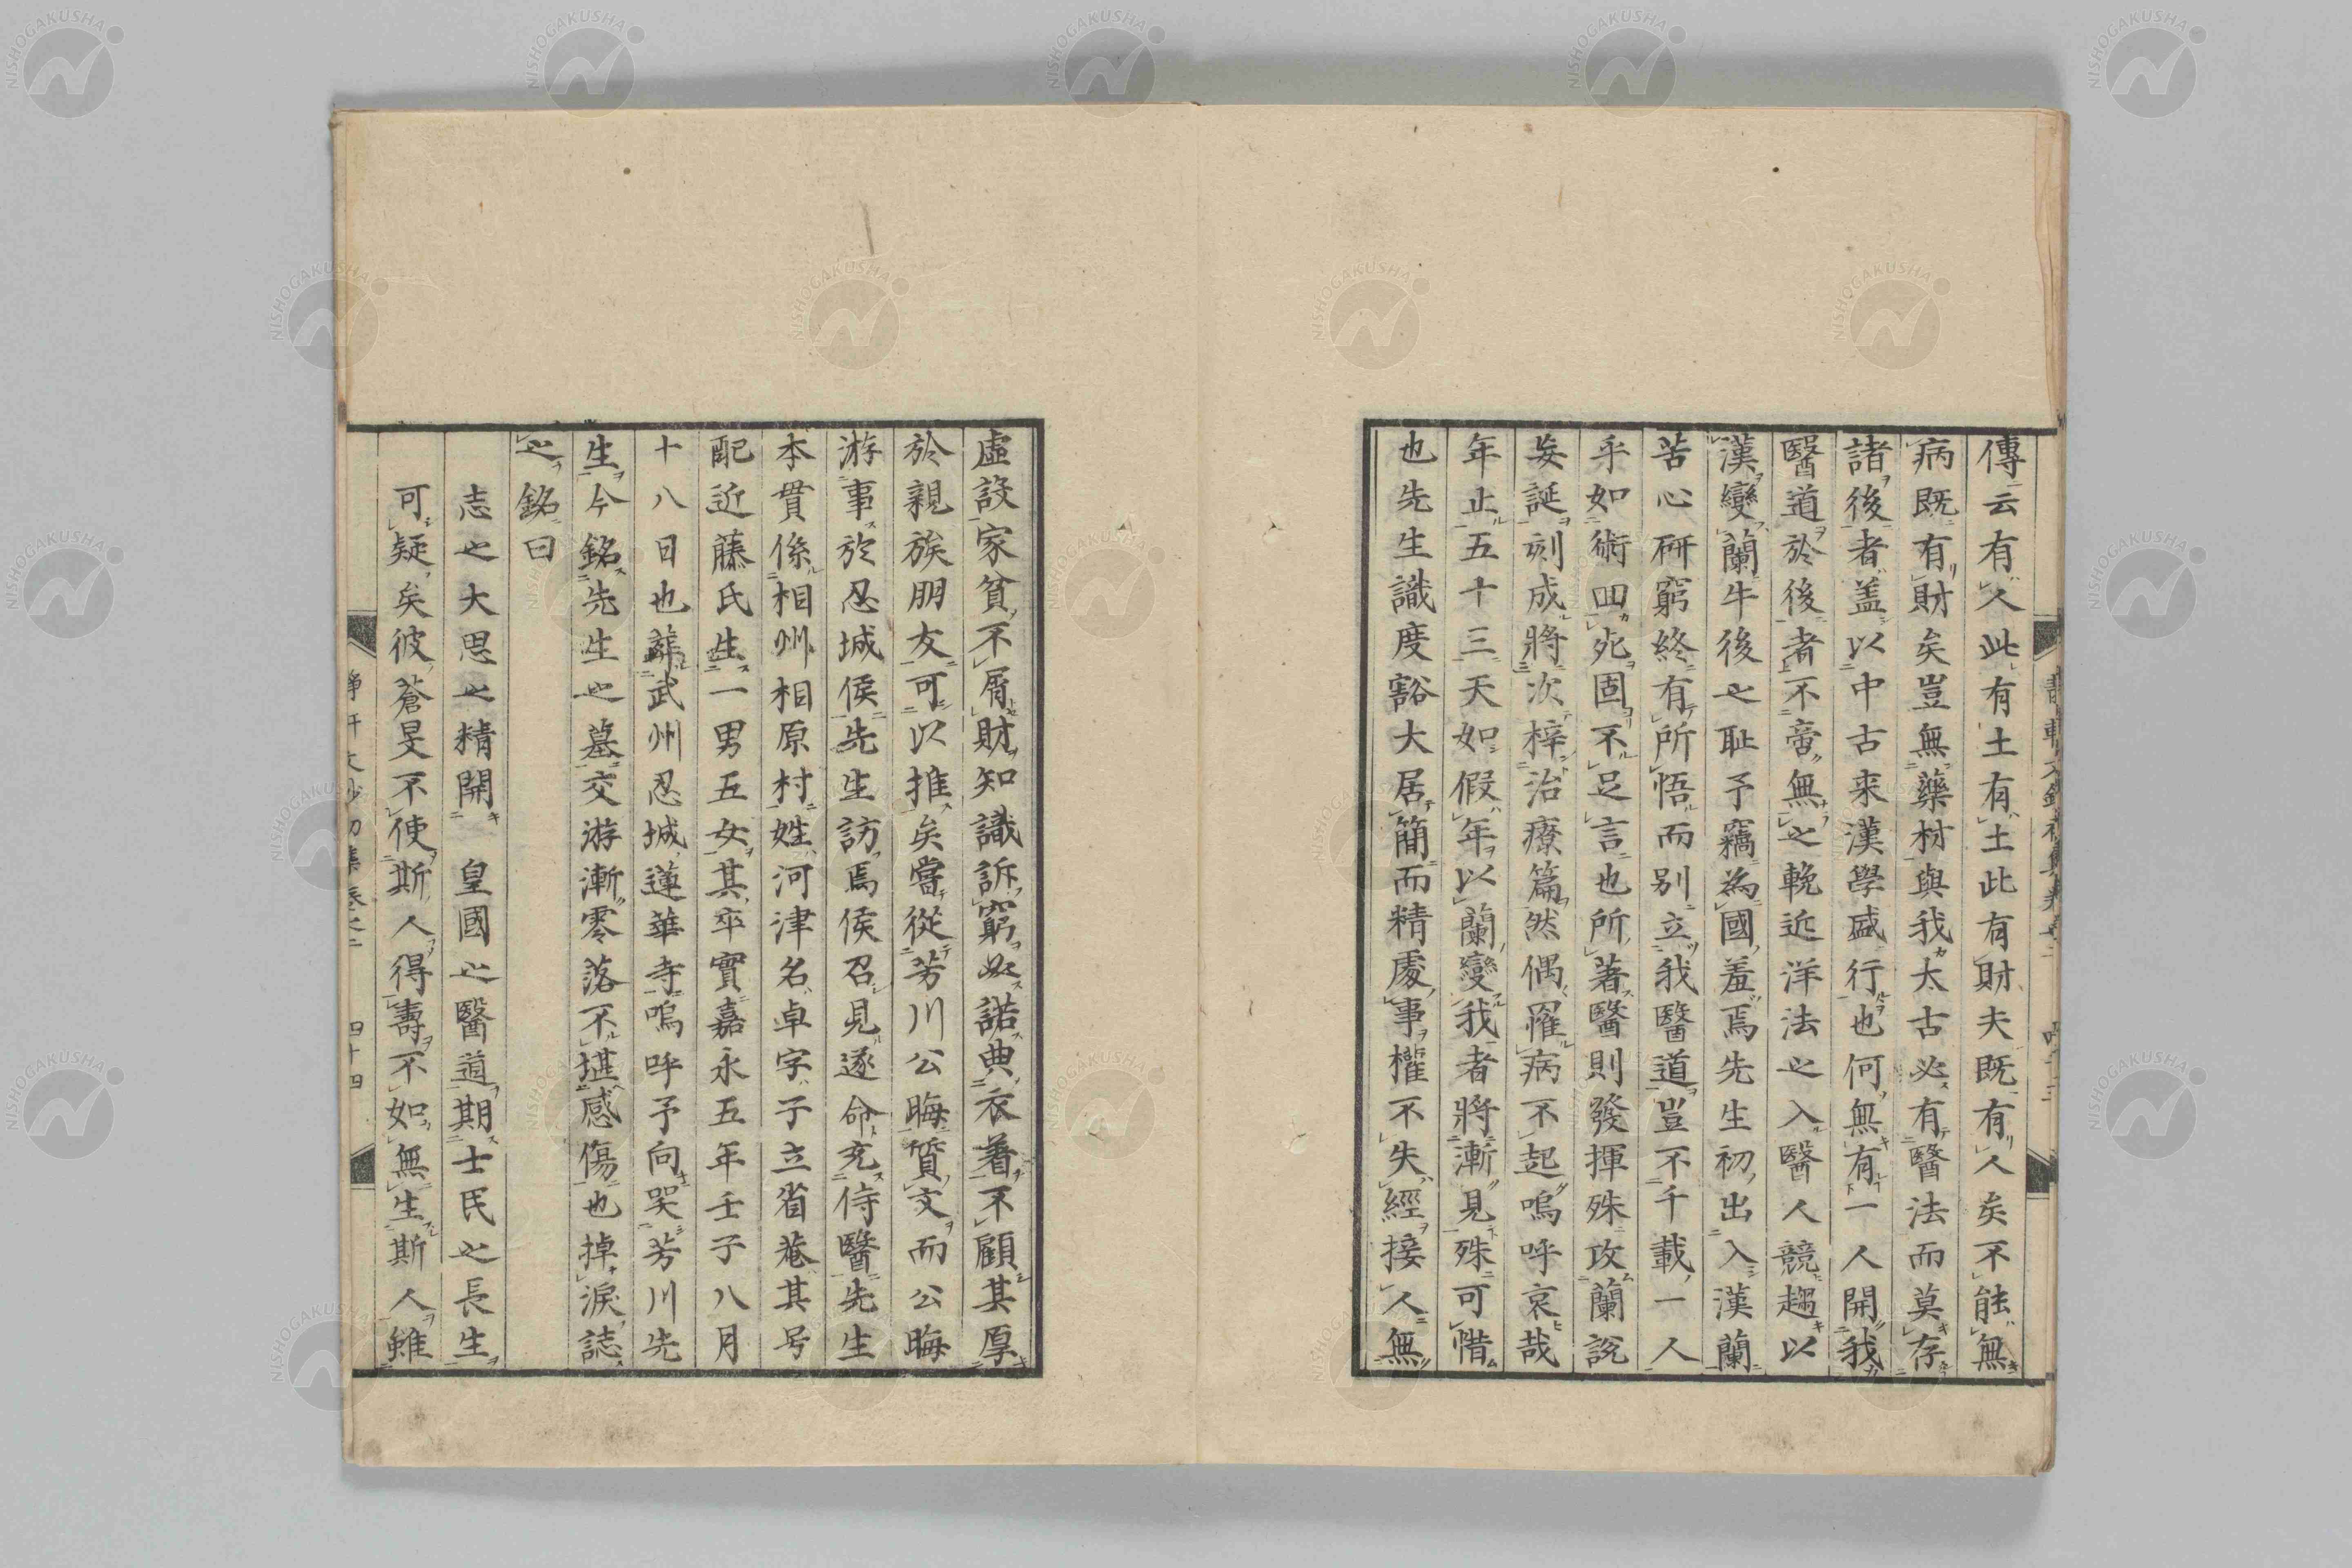 傳云有人此有土有土此有財夫既有人矣不能無
病既有財矣豈無藥材與我太古必有醫法而莫存
諸後者蓋以中古来漢學盛行也何無有一人開我
醫道於後者不啻無之輓近洋法之入醫人競趨以
漢變蘭牛後之耻予竊為國羞焉先生初出入漢蘭
苦心研窮終有所悟而別立我醫道豈不千載一人
乎如術回死固不足言也所著醫則發揮殊攻蘭說
妄誕刻成將次梓治療篇然偶罹病不起嗚呼哀哉
年止五十三天如假年以蘭變我者將漸見殊可惜
也先生識度豁大居簡而精處事權不失經接人無
虛設家貧不屑財知識訴窮如諾典衣着不顧其厚
於親族朋友可以推矣嘗從芳川公晦質文而公晦
游事於忍城侯先生訪焉侯召見遂命充侍醫先生
本貫係相州相原村姓河津名卓字子立省菴其号
配近藤氏生一男五女其卒實嘉永五年壬子八月
十八日也葬武州忍城蓮華寺嗚呼予向哭芳川先
生今銘先生之墓交游漸零落不堪感傷也掉淚誌
之銘曰
志之大思之精開　皇國之醫道期士民之長生
可疑矣彼蒼旻不使斯人得壽不如無生斯人雖
靜軒文鈔初集卷之二　四十四